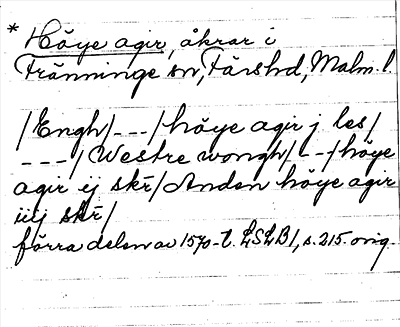 * Höye agir, åkrar i
Fränninge sn, Färs hd, Malm. l.
/Engh/---/höye agir j les/
---/Westre wongh/---/höye
agir ij skr/Anden höye agir
iij skr/
förra delen av 1570-t. LSLB1, s. 215. orig.